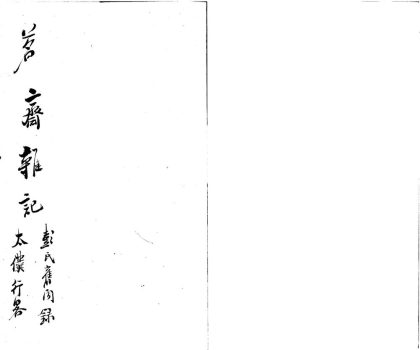 茗齋雜記
彭氏舊聞錄
太僕行畧